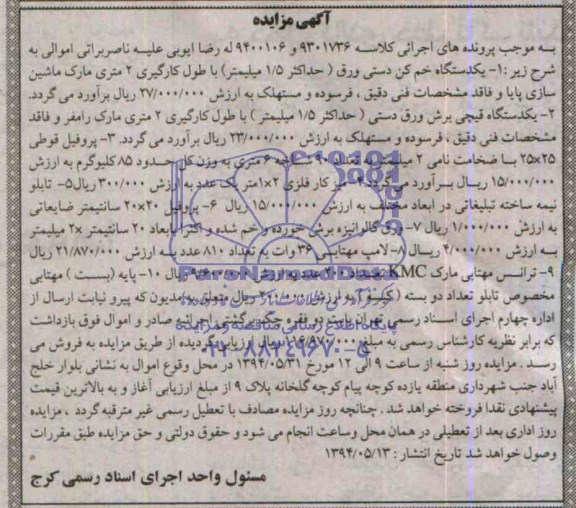 آگهی مزایده
به موجب پرونده های اجرائی کلاسه ۹۳۰۱۷۳۶ و ۹۴۰۰۱۰۶ له رضا ایوبی علیه ناصربراتی اموالی به
شرح زیر :۱- یکدستگاه خم کن دستی ورق ( حداکثر ۱/۵ میلیمتر) با طول کارگیری ۲ متری مارک ماشین
سازی پایا و فاقد مشخصات فنی دقیق ، فرسوده و مستهلک به ارزش ۲۷/۰۰۰/۰۰۰ ریال برآورد می گردد.
۲- یکدستگاه قیچی برش ورق دستی ( حداکثر ۱/۵ میلیمتر ) با طول کارگیری ۲ متری مارک رامفر و فاقد
مشخصات فنی دقیق ، فرسوده و مستهلک به ارزش ۲۳/۰۰۰/۰۰۰ ریال برآورد می گردد. ۳- پروفیل قوطی
۲۵x۲۵ با ضخامت نامی ۲ میلیمتر به تعداد ۹ شاخه ۶ متری به وزن کل حدود ۸۵ کیلوگرم به ارزش
۱۵/۰۰۰/۰۰۰ ریال برآورد می گردد. ۴- میز کار فلزی ۲x۱متر یک عدد به ارزش ۳۰۰/۰۰۰ ریال ۵- تابلو
نیمه ساخته تبلیغاتی در ابعاد مختلف به ارزش ۱۵/۰۰۰/۰۰۰ ریال ۶- پروفیل ۲۰x۲۰ سانتیمتر ضایعاتی
به ارزش ۱/۰۰۰/۰۰۰ ریال ۷- ورق گالوانیزه برش خورده و خم شده و اکثرا بابعاد ۲۰ سانتیمتر x۲ میلیمتر
به ارزش ۴/۰۰۰/۰۰۰ ریال ۸- لامپ مهتابی ۳۶ وات به تعداد ۸۱۰ عدد به ارزش ۲۱/۸۷۰/۰۰۰ ریال
۹- ترانس مهتابی مارک KMC تعداد عدد به ارزش ریال ۱۰- پایه (بست ) مهتابی
مخصوص تابلو تعداد دو بسته (کیسه) به ارزش ریال متعلق به مدیون که پیرو نیابت ارسال از
اداره چهارم اجرای اسناد رسمی تهران بابت دو فقره چک برگشتی اجرائیه صادر و اموال فوق بازداشت
که برابر نظریه کارشناس رسمی به مبلغ ریال ارزیابی گردیده از طریق مزایده به فروش می
رسد . مزایده روز شنبه از ساعت ۹ الی ۱۲ مورخ ۱۳۹۴/۰۵/۳۱ در محل وقوع اموال به نشانی بلوار خلج
آباد جنب شهرداری منطقه یازده کوچه پیام کوچه گلخانه پلاک ۹ از مبلغ ارزیابی آغاز و به بالاترین قیمت
پیشنهادی نقدا فروخته خواهد شد . چنانچه روز مزایده مصادف با تعطیل رسمی غیر مترقبه گردد ، مزایده
روز اداری بعد از تعطیلی در همان محل وساعت انجام می شود و حقوق دولتی و حق مزایده طبق مقررات
وصول خواهد شد تاریخ انتشار : ۱۳۹۴/۰۵/۱۳
مسئول واحد اجرای اسناد رسمی کرج
ParsNamadData
پایگاه اطلاع رسانی مناقصه و مزایده
۰۲۱-۸۸۳۴۹۶۷۰-۵